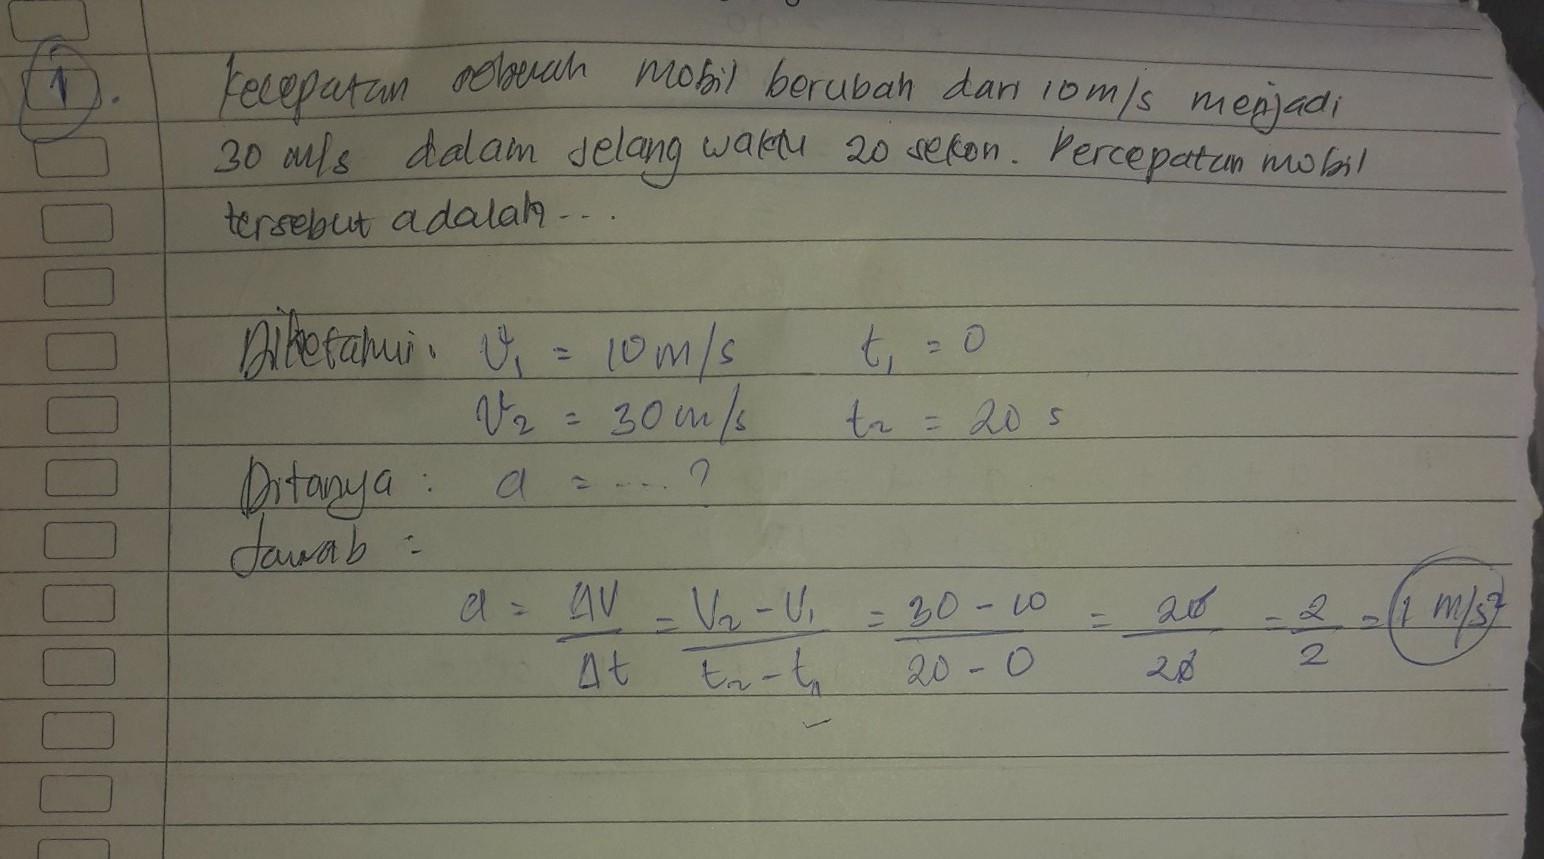 1. Kecepatan sebuah mobil berubah dari 10 m/s menjadi
30 m/s dalam selang waktu 20 sekon. Percepatan mobil
tersebut adalah ....
Diketahui. V₁ = 10 m/s t₁ = 0
V₂ = 30 m/s t₂ = 20 s
Ditanya : a = ....?
Jawab :
a = ΔV/Δt = V₂ - V₁/t₂ - t₁ = 30 - 10/20 - 0 = 20/20 = 2/2 = 1 m/s²